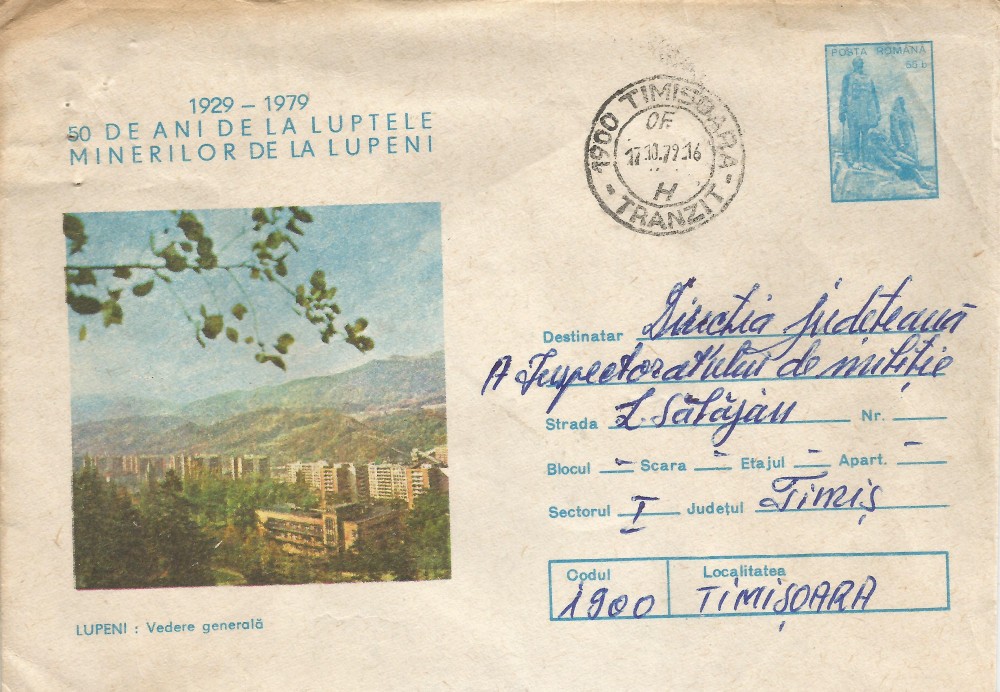 1929 – 1979
50 DE ANI DE LA LUPTELE
MINERILOR DE LA LUPENI
POSTA ROMÂNĂ
55 b
1900 TIMISOARA
OF.
17.10.79.16
H
- TRANZIT -
Destinatar Direcția județeană
A Inspectoratului de miliție
Strada L. Sălăjan Nr.
Blocul – Scara – Etajul – Apart. –
Sectorul I Județul Timiș
Codul Localitatea
1900 TIMIȘOARA
LUPENI : Vedere generală